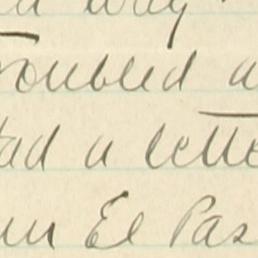 way.
roubled a
had a lette
El Pas